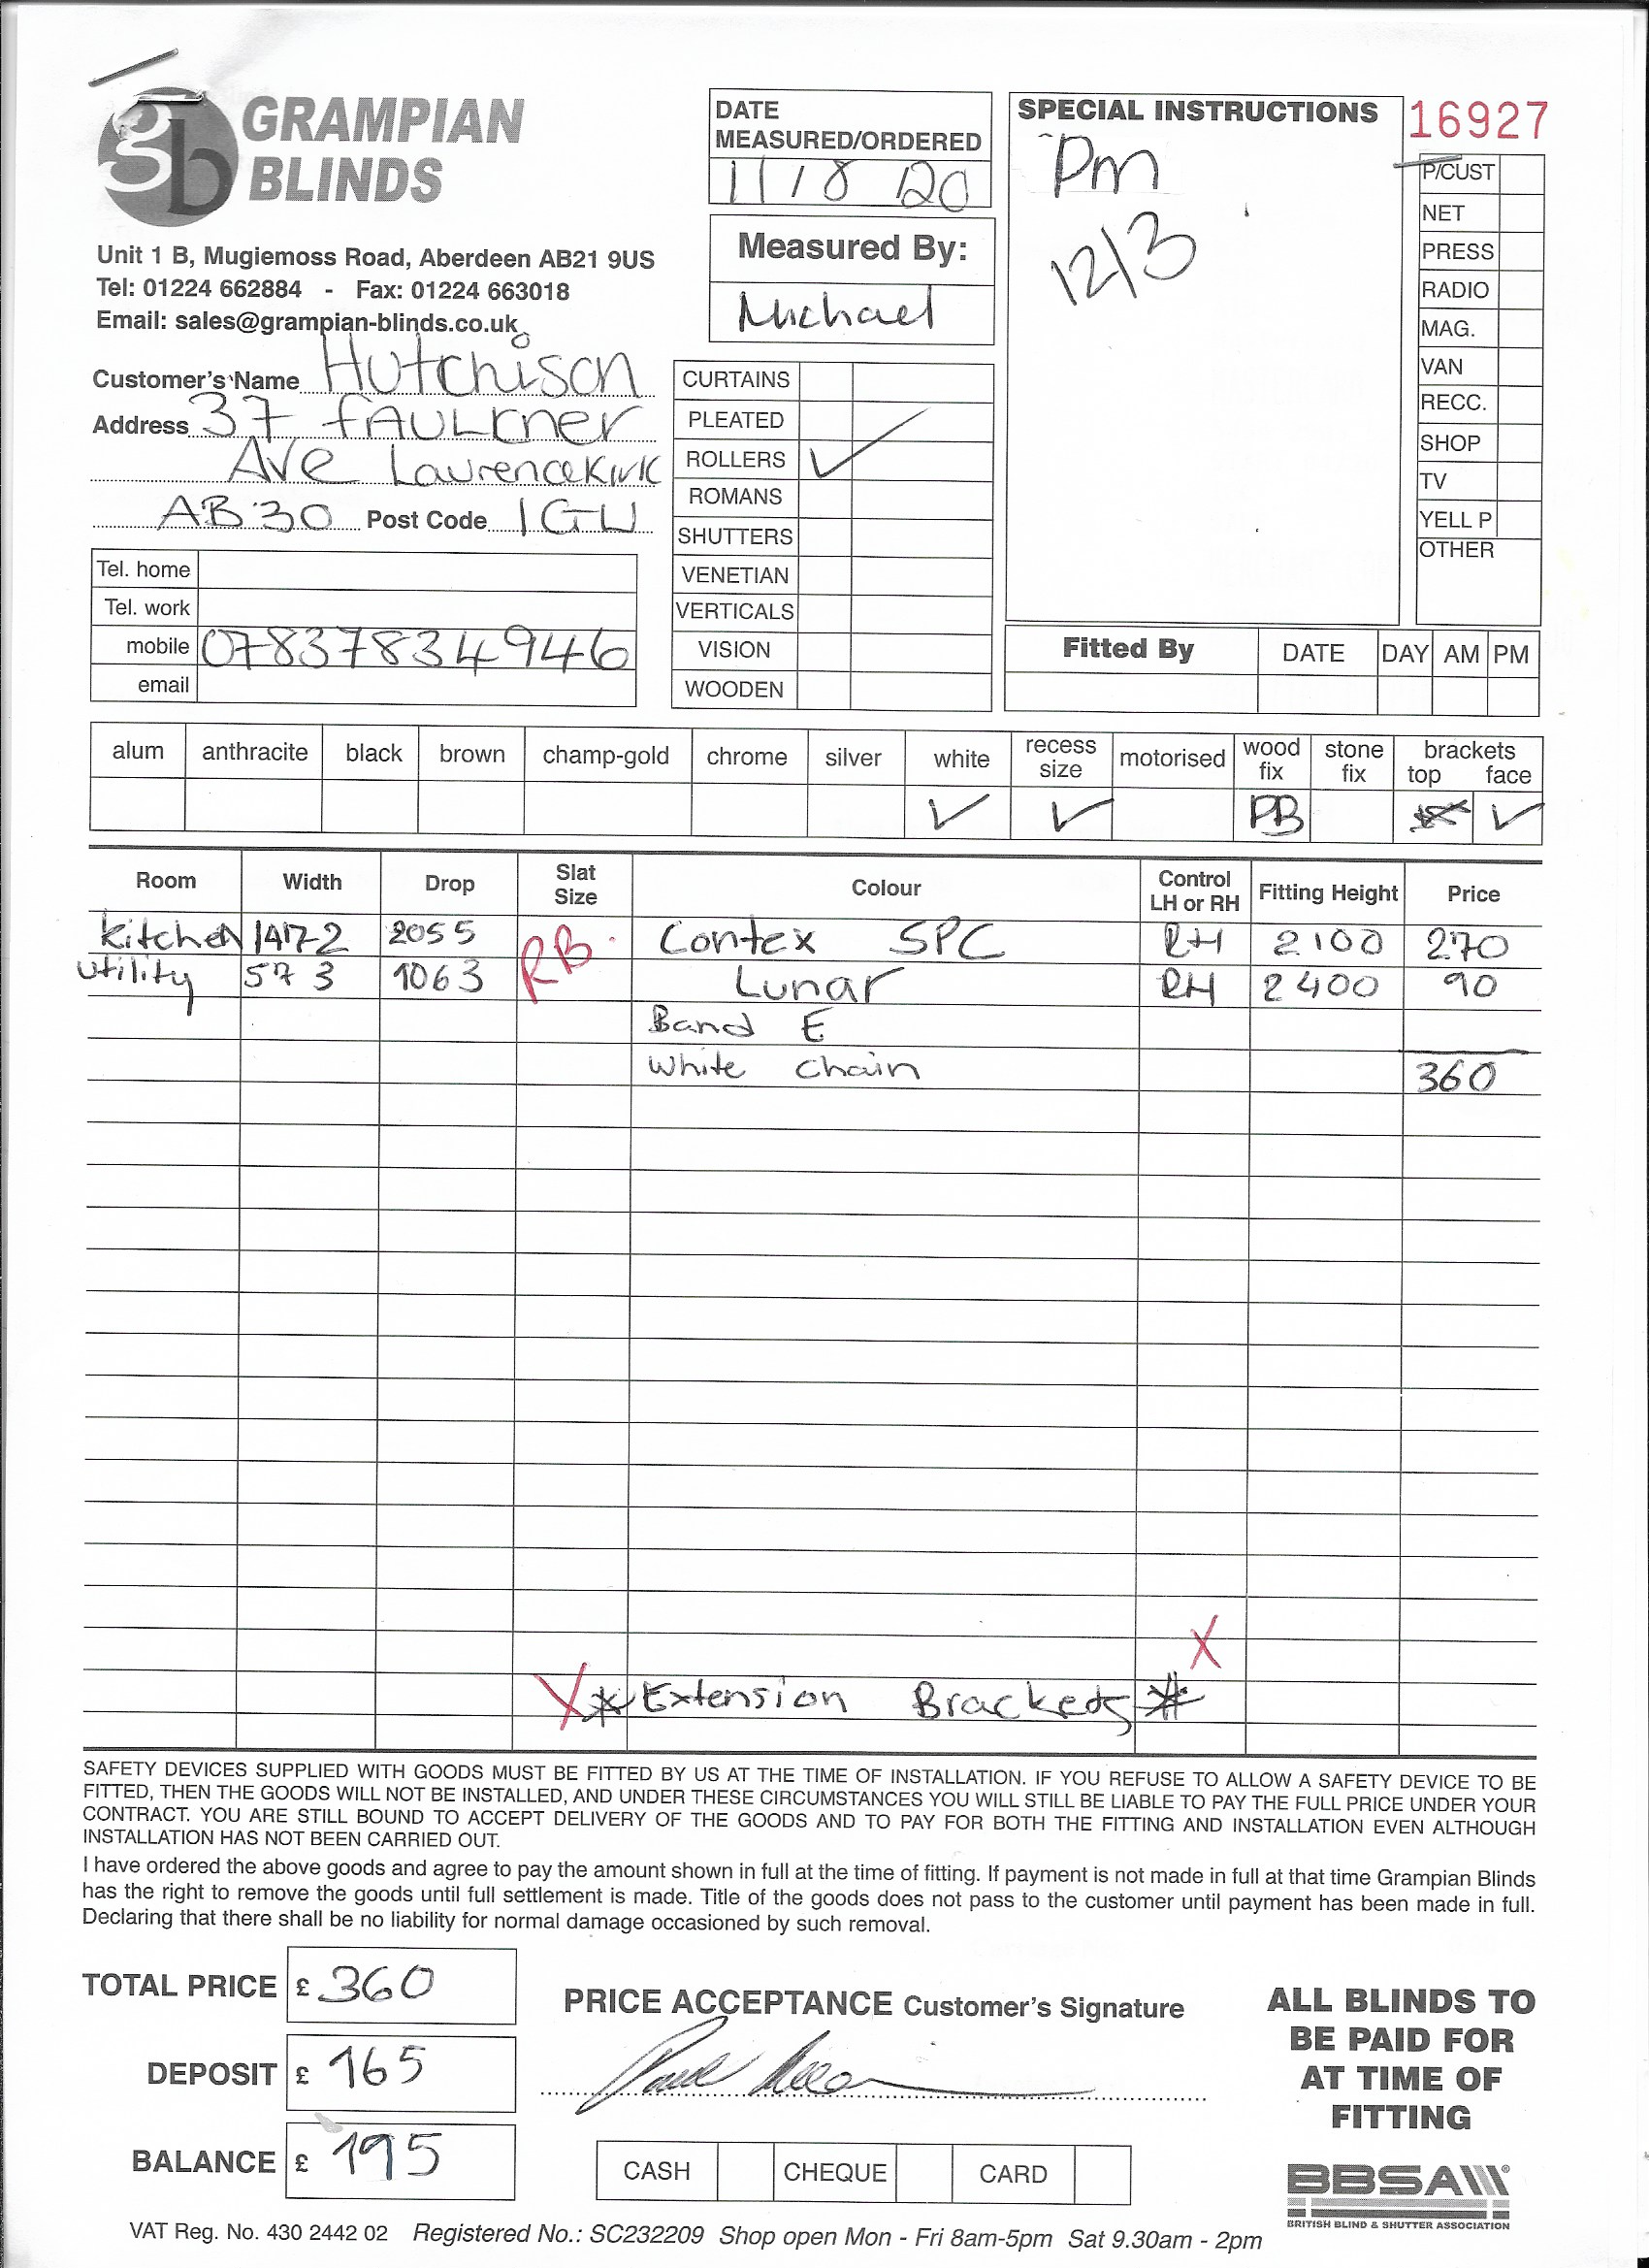 GRAMPIAN
BLINDS
gb
Unit 1 B, Mugiemoss Road, Aberdeen AB21 9US
Tel: 01224 662884 - Fax: 01224 663018
Email: sales@grampian-blinds.co.uk
Customer's Name Hutchison
Address 37 FAULKner
Ave Laurencekirk
AB30 Post Code 1GU
Tel. home
Tel. work
mobile 07837834946
email
DATE
MEASURED/ORDERED
11/8/20
Measured By:
Michael
CURTAINS
PLEATED
ROLLERS ✓
ROMANS
SHUTTERS
VENETIAN
VERTICALS
VISION
WOODEN
SPECIAL INSTRUCTIONS
Pm
12/3
16927
P/CUST
NET
PRESS
RADIO
MAG.
VAN
RECC.
SHOP
TV
YELL P
OTHER
Fitted By DATE DAY AM PM
alum anthracite black brown champ-gold chrome silver white recess size motorised wood fix stone fix brackets top face
✓ ✓ PB ✓
Room Width Drop Slat Size Colour Control LH or RH Fitting Height Price
Kitchen 1472 2055 RB Contex SPC RH 2100 270
Utility 573 1063 Lunar RH 2400 90
Band E
White Chain 360
X * Extension Brackets * X
SAFETY DEVICES SUPPLIED WITH GOODS MUST BE FITTED BY US AT THE TIME OF INSTALLATION. IF YOU REFUSE TO ALLOW A SAFETY DEVICE TO BE
FITTED, THEN THE GOODS WILL NOT BE INSTALLED, AND UNDER THESE CIRCUMSTANCES YOU WILL STILL BE LIABLE TO PAY THE FULL PRICE UNDER YOUR
CONTRACT. YOU ARE STILL BOUND TO ACCEPT DELIVERY OF THE GOODS AND TO PAY FOR BOTH THE FITTING AND INSTALLATION EVEN ALTHOUGH
INSTALLATION HAS NOT BEEN CARRIED OUT.
I have ordered the above goods and agree to pay the amount shown in full at the time of fitting. If payment is not made in full at that time Grampian Blinds
has the right to remove the goods until full settlement is made. Title of the goods does not pass to the customer until payment has been made in full.
Declaring that there shall be no liability for normal damage occasioned by such removal.
TOTAL PRICE £ 360
DEPOSIT £ 165
BALANCE £ 195
PRICE ACCEPTANCE Customer's Signature
CASH CHEQUE CARD
ALL BLINDS TO
BE PAID FOR
AT TIME OF
FITTING
BBSA
BRITISH BLIND & SHUTTER ASSOCIATION
VAT Reg. No. 430 2442 02 Registered No.: SC232209 Shop open Mon - Fri 8am-5pm Sat 9.30am - 2pm